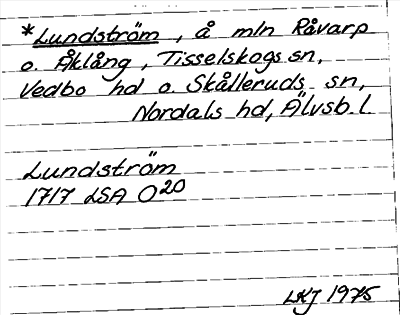 *Lundström, å mln Råvarp
o. Åklång, Tisselskogs sn,
Vedbo hd o. Skålleruds sn,
Nordals hd, Älvsb. l.
Lundström
1717 LSA O20
LKJ 1975